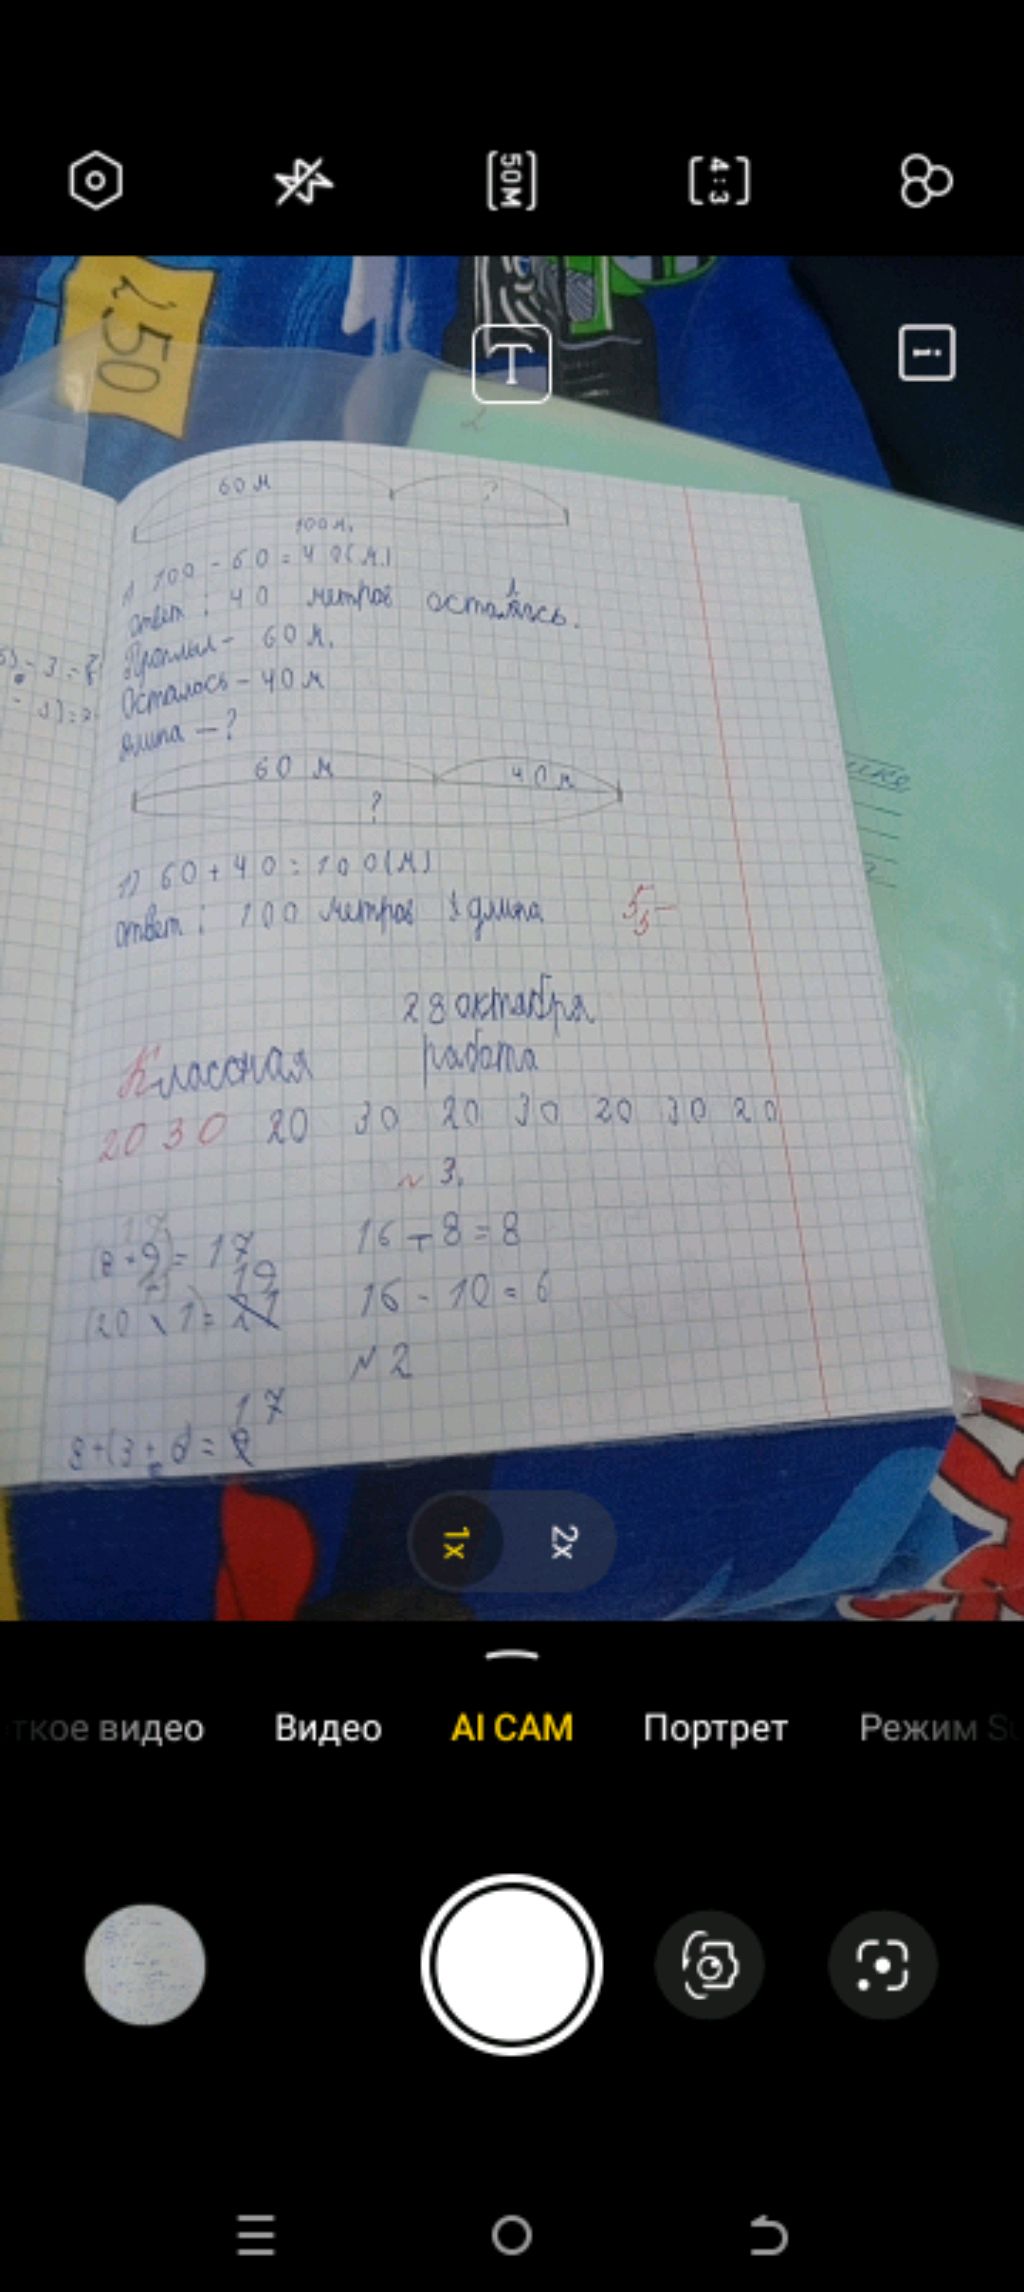 50M
4:3
250
T
60 м ?
100 м.
1) 100 - 60 = 40 (м)
ответ: 40 метров осталось.
Проплыл - 60 м.
Осталось - 40 м
длина - ?
60 м 40 м
?
1) 60 + 40 = 100 (м)
ответ: 100 метров длина
5-
28 октября
Классная работа
20 30 20 30 20 30 20 30 20
~ 3.
(8+9) = 17 16 - 8 = 8
19
(20 \ 1) = 21 16 - 10 = 6
N 2
17
8+(3+6) =
1x 2x
ткое видео Видео AI CAM Портрет Режим Su